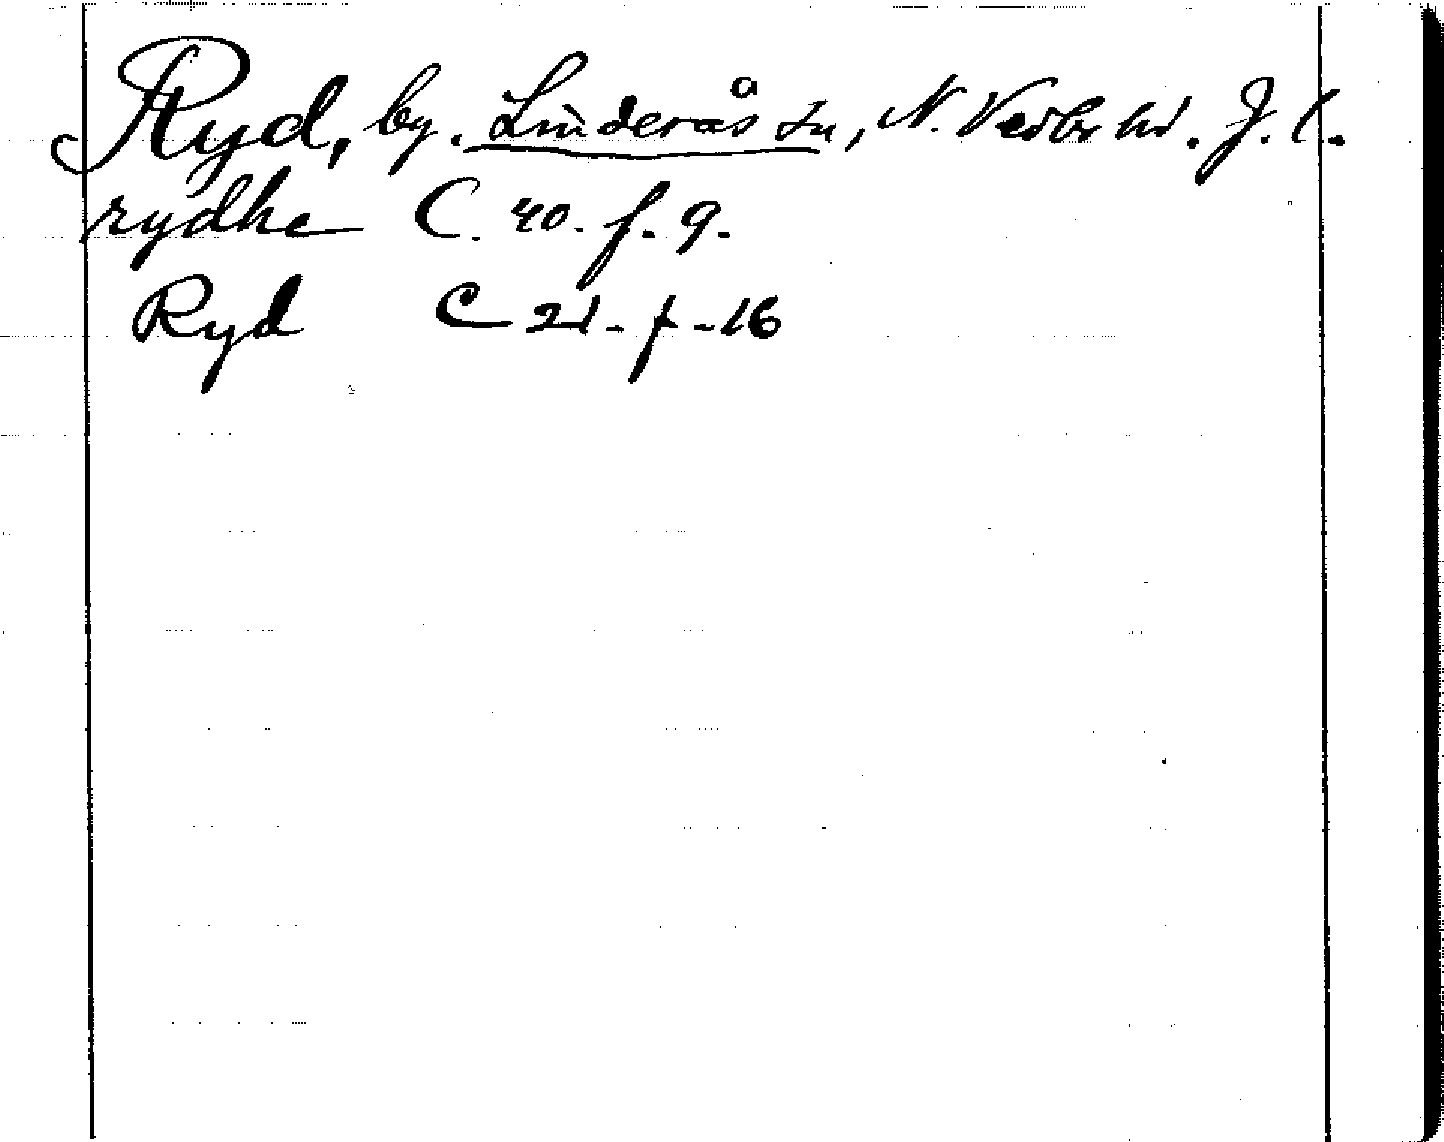 Ryd, by. Linderås sn, N. Vedbr hd. J. l.
rydhe C. 40. f. 9.
Ryd C 21 - f - 16